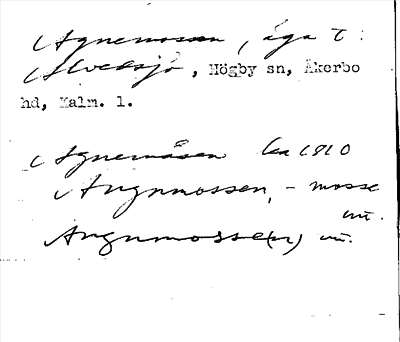 Agnemosen, äga t:
Alvelsjö, Högby sn, Åkerbo
hd, Kalm. l.
Agnemåsen ka 1810
Angnmossen, - mosse
un.
Angnmosse(n) un.